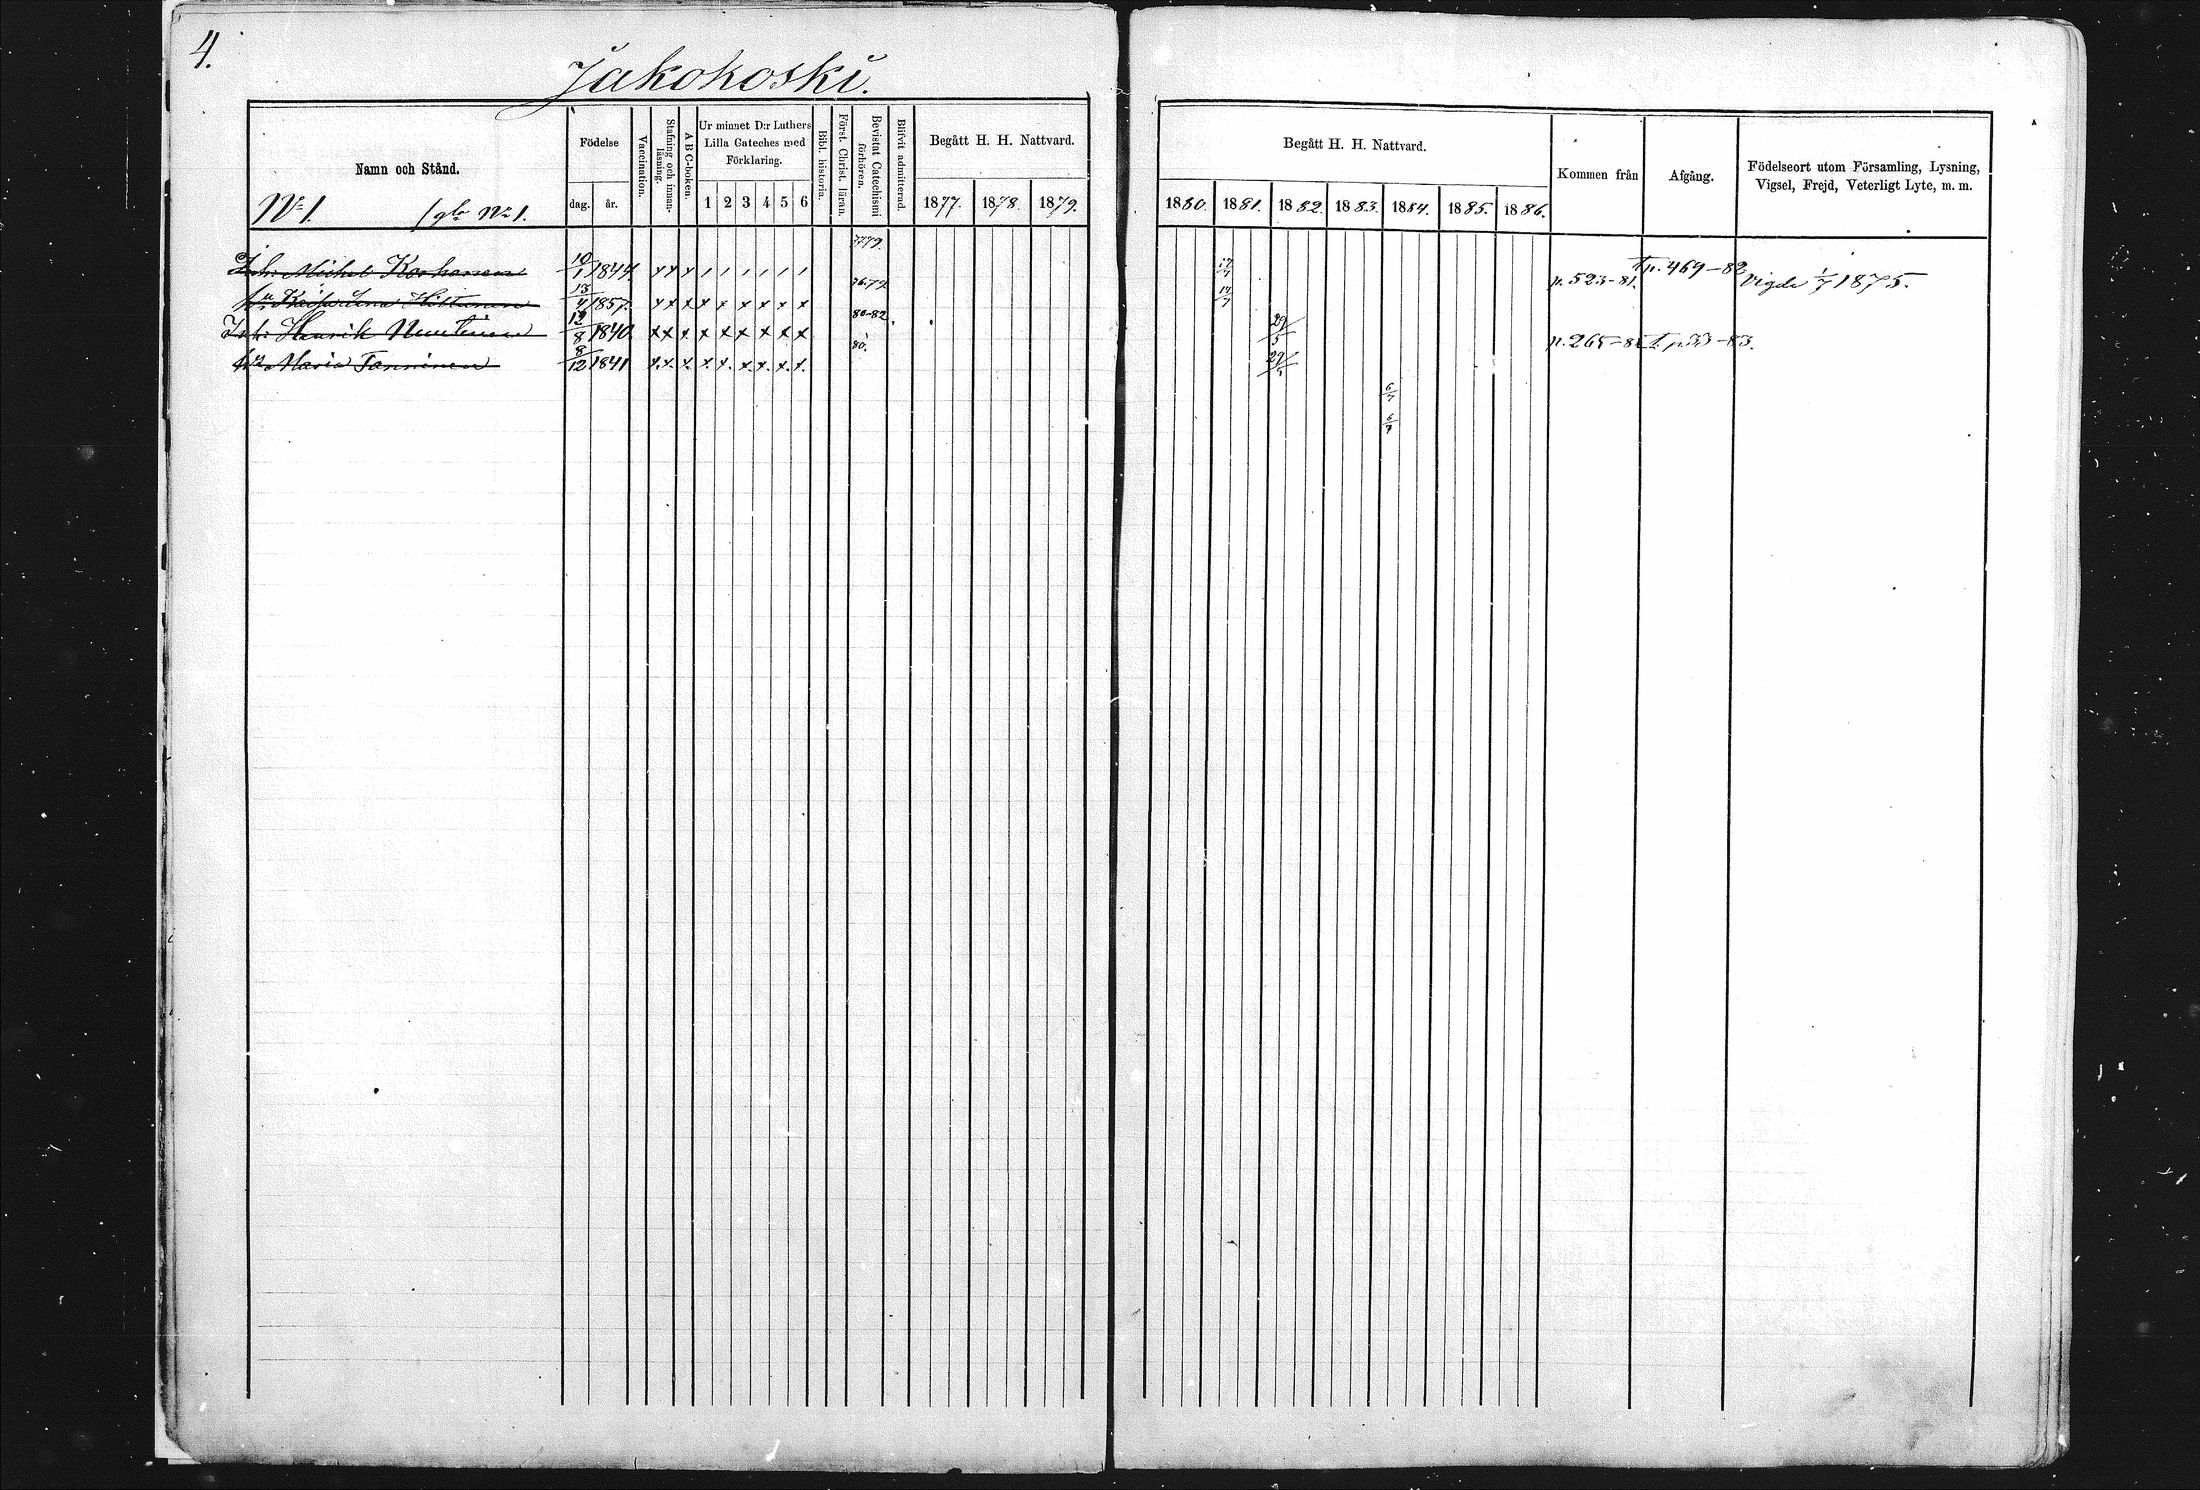 4.
Jakokoski.
Namn och Stånd.
Nº 1. / gla Nº 1.
Födelse
dag. år.
Vaccination.
Stafning och innanläsning.
A B C-boken.
Ur minnet D:r Luthers Lilla Cateches med Förklaring.
1 2 3 4 5 6
Bibl. historia.
Först. Christ. läran.
Bevistat Catechismi förhören.
Blifvit admitterad.
Begått H. H. Nattvard.
1877. 1878. 1879.
Begått H. H. Nattvard.
1880. 1881. 1882. 1883. 1884. 1885. 1886.
Kommen från
Afgång.
Födelseort utom Församling, Lysning, Vigsel, Frejd, Veterligt Lyte, m. m.
77.79.
Inh: Michel Korhonen 10/1 1844. x x x / / / / / / 17/7 p. 523-81. T p. 469-82 Vigde 1/7 1875.
hu Kaisa Lena Hiltunen 15/4 1857. x x x x x x x x x 76.79. 17/7
Inh: Henrik Nuutinen 12/8 1840 x x x x x x x x x 80-82. 29/5 p. 265-81 T. p. 33-83.
hu Maria Tanninen 8/12 1841 x x x x x x x x x 80. 29/5
6/7
6/7